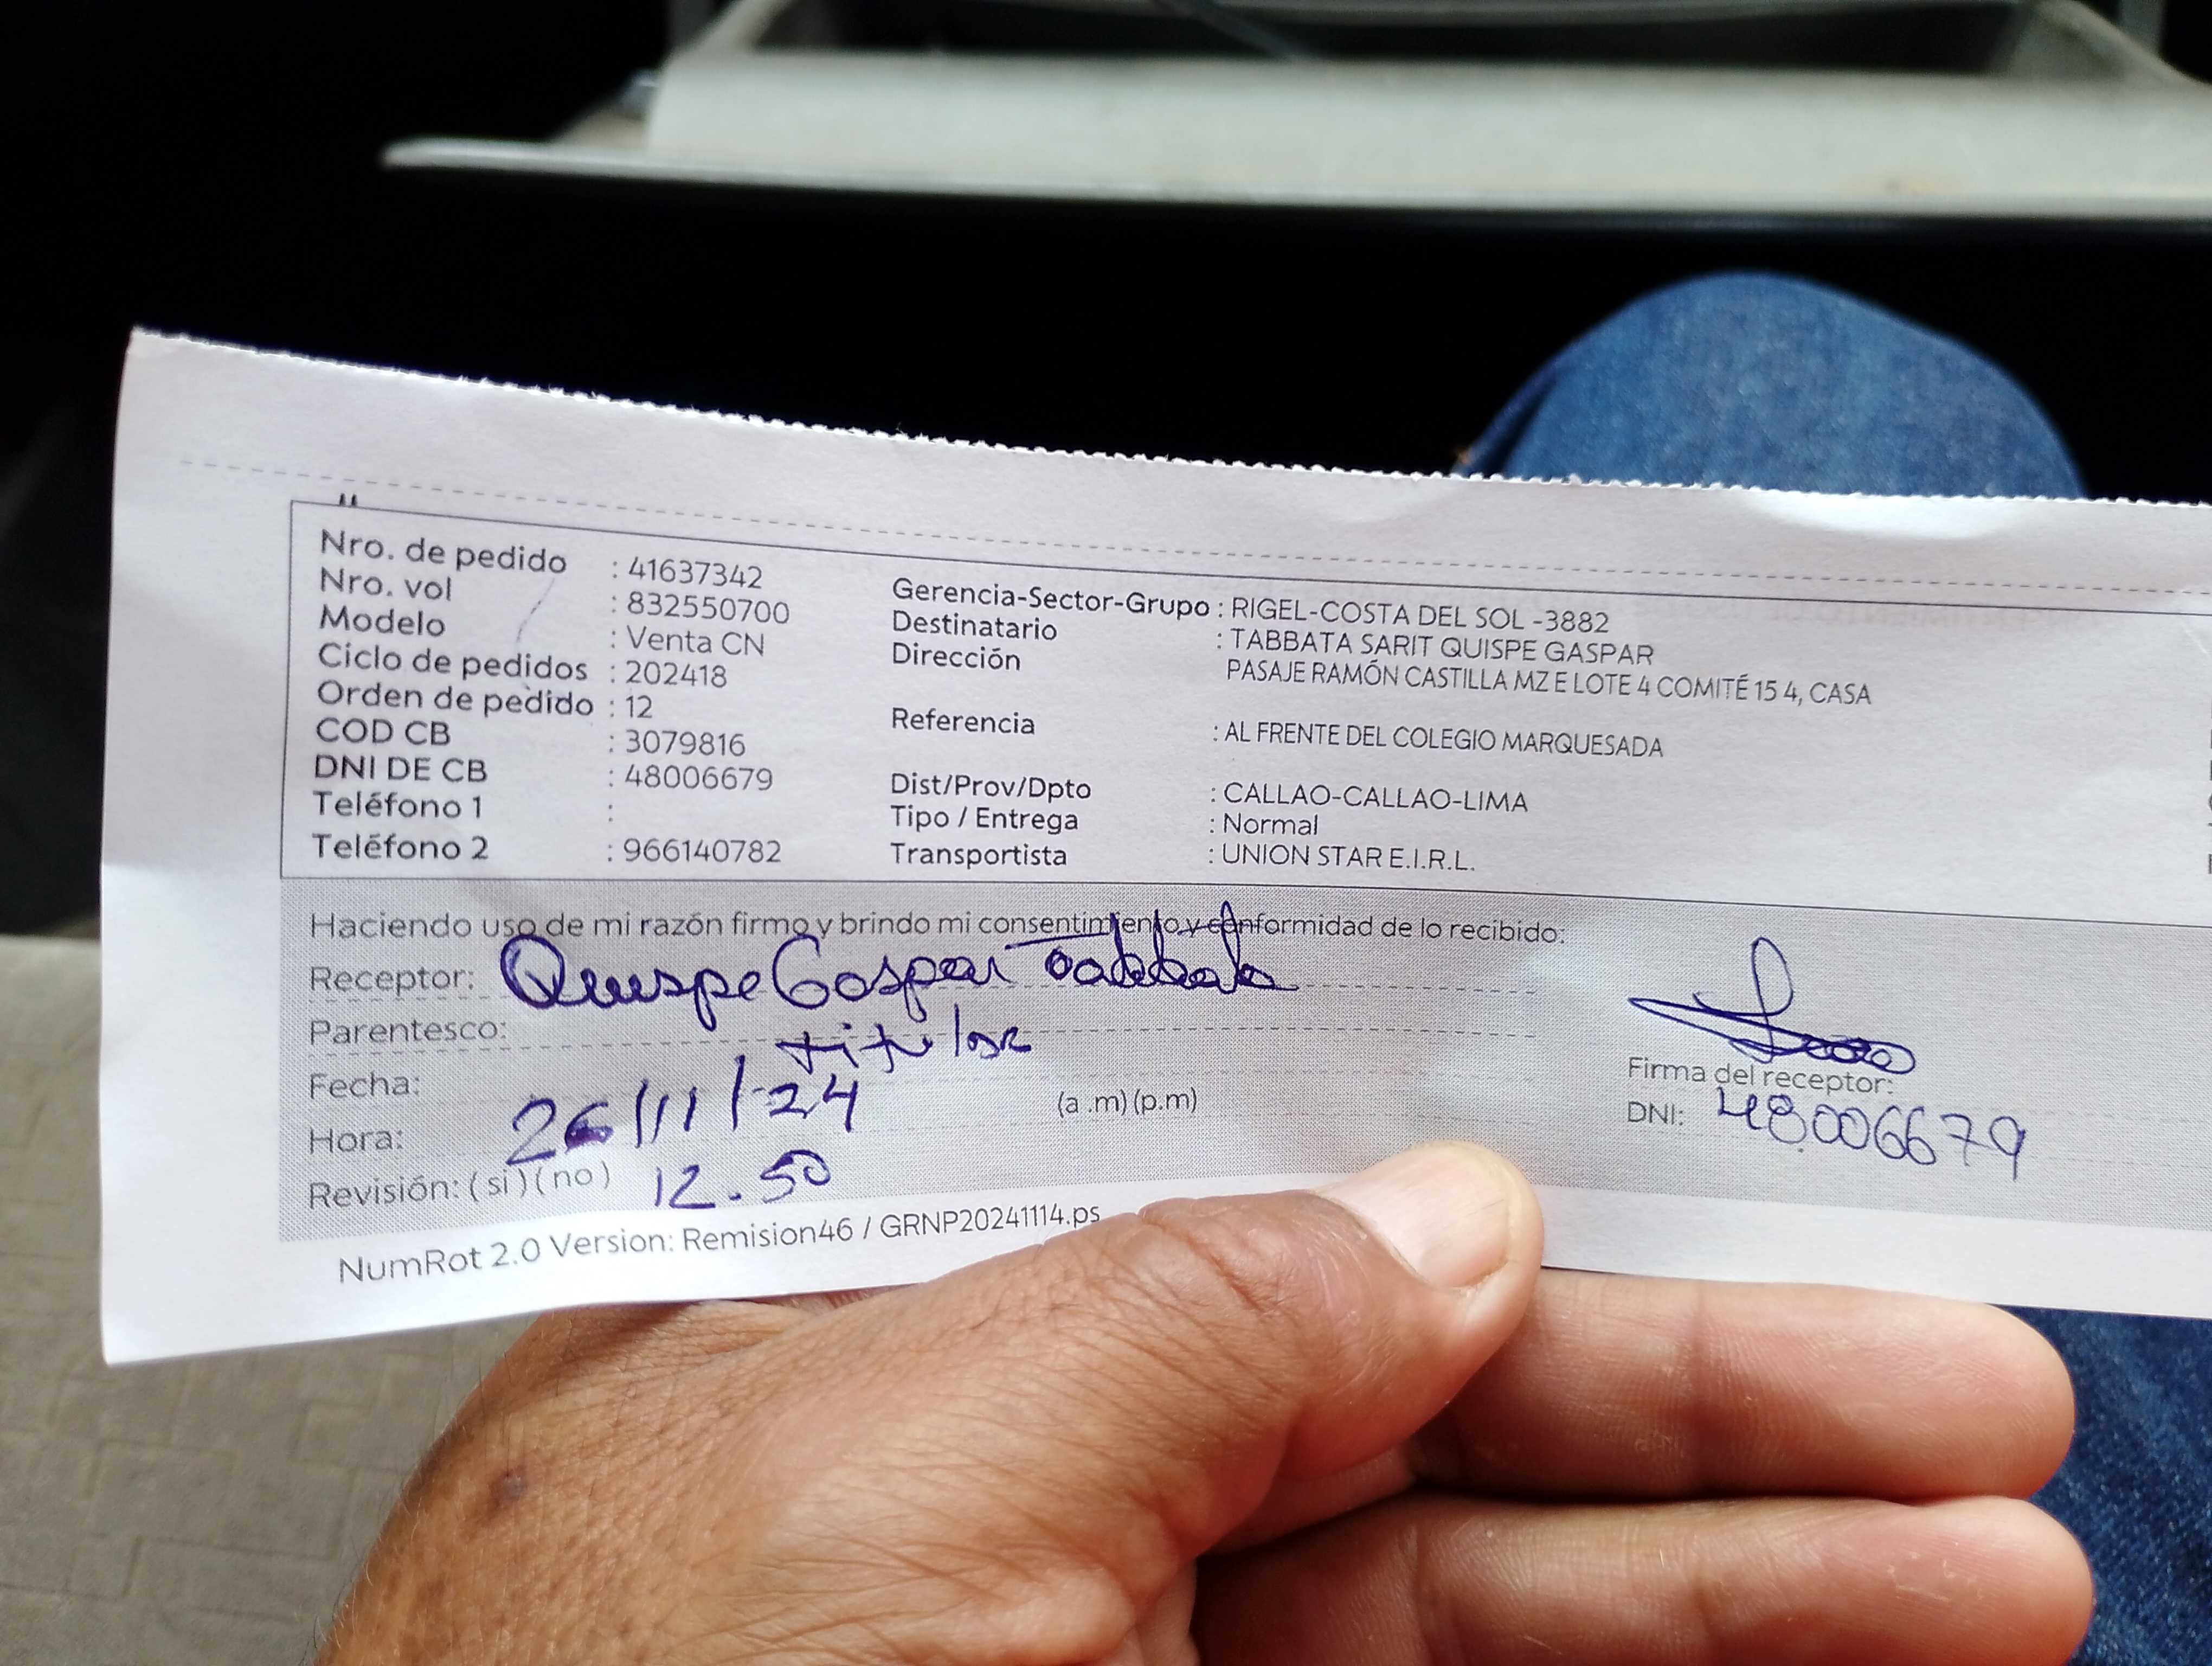 Nro. de pedido : 41637342
Nro. vol : 832550700
Modelo : Venta CN
Ciclo de pedidos : 202418
Orden de pedido : 12
COD CB : 3079816
DNI DE CB : 48006679
Teléfono 1 :
Teléfono 2 : 966140782
Gerencia-Sector-Grupo : RIGEL-COSTA DEL SOL -3882
Destinatario : TABBATA SARIT QUISPE GASPAR
Dirección PASAJE RAMÓN CASTILLA MZ E LOTE 4 COMITÉ 15 4, CASA
Referencia : AL FRENTE DEL COLEGIO MARQUESADA
Dist/Prov/Dpto : CALLAO-CALLAO-LIMA
Tipo / Entrega : Normal
Transportista : UNION STAR E.I.R.L.
Haciendo uso de mi razón firmo y brindo mi consentimiento y conformidad de lo recibido:
Receptor: Quispe Gaspar Tabbata
Parentesco: titular
Fecha: 26/11/24
Hora: 12.50 (a .m) (p.m)
Revisión: ( si ) ( no )
Firma del receptor:
DNI: 48006679
NumRot 2.0 Version: Remision46 / GRNP20241114.ps